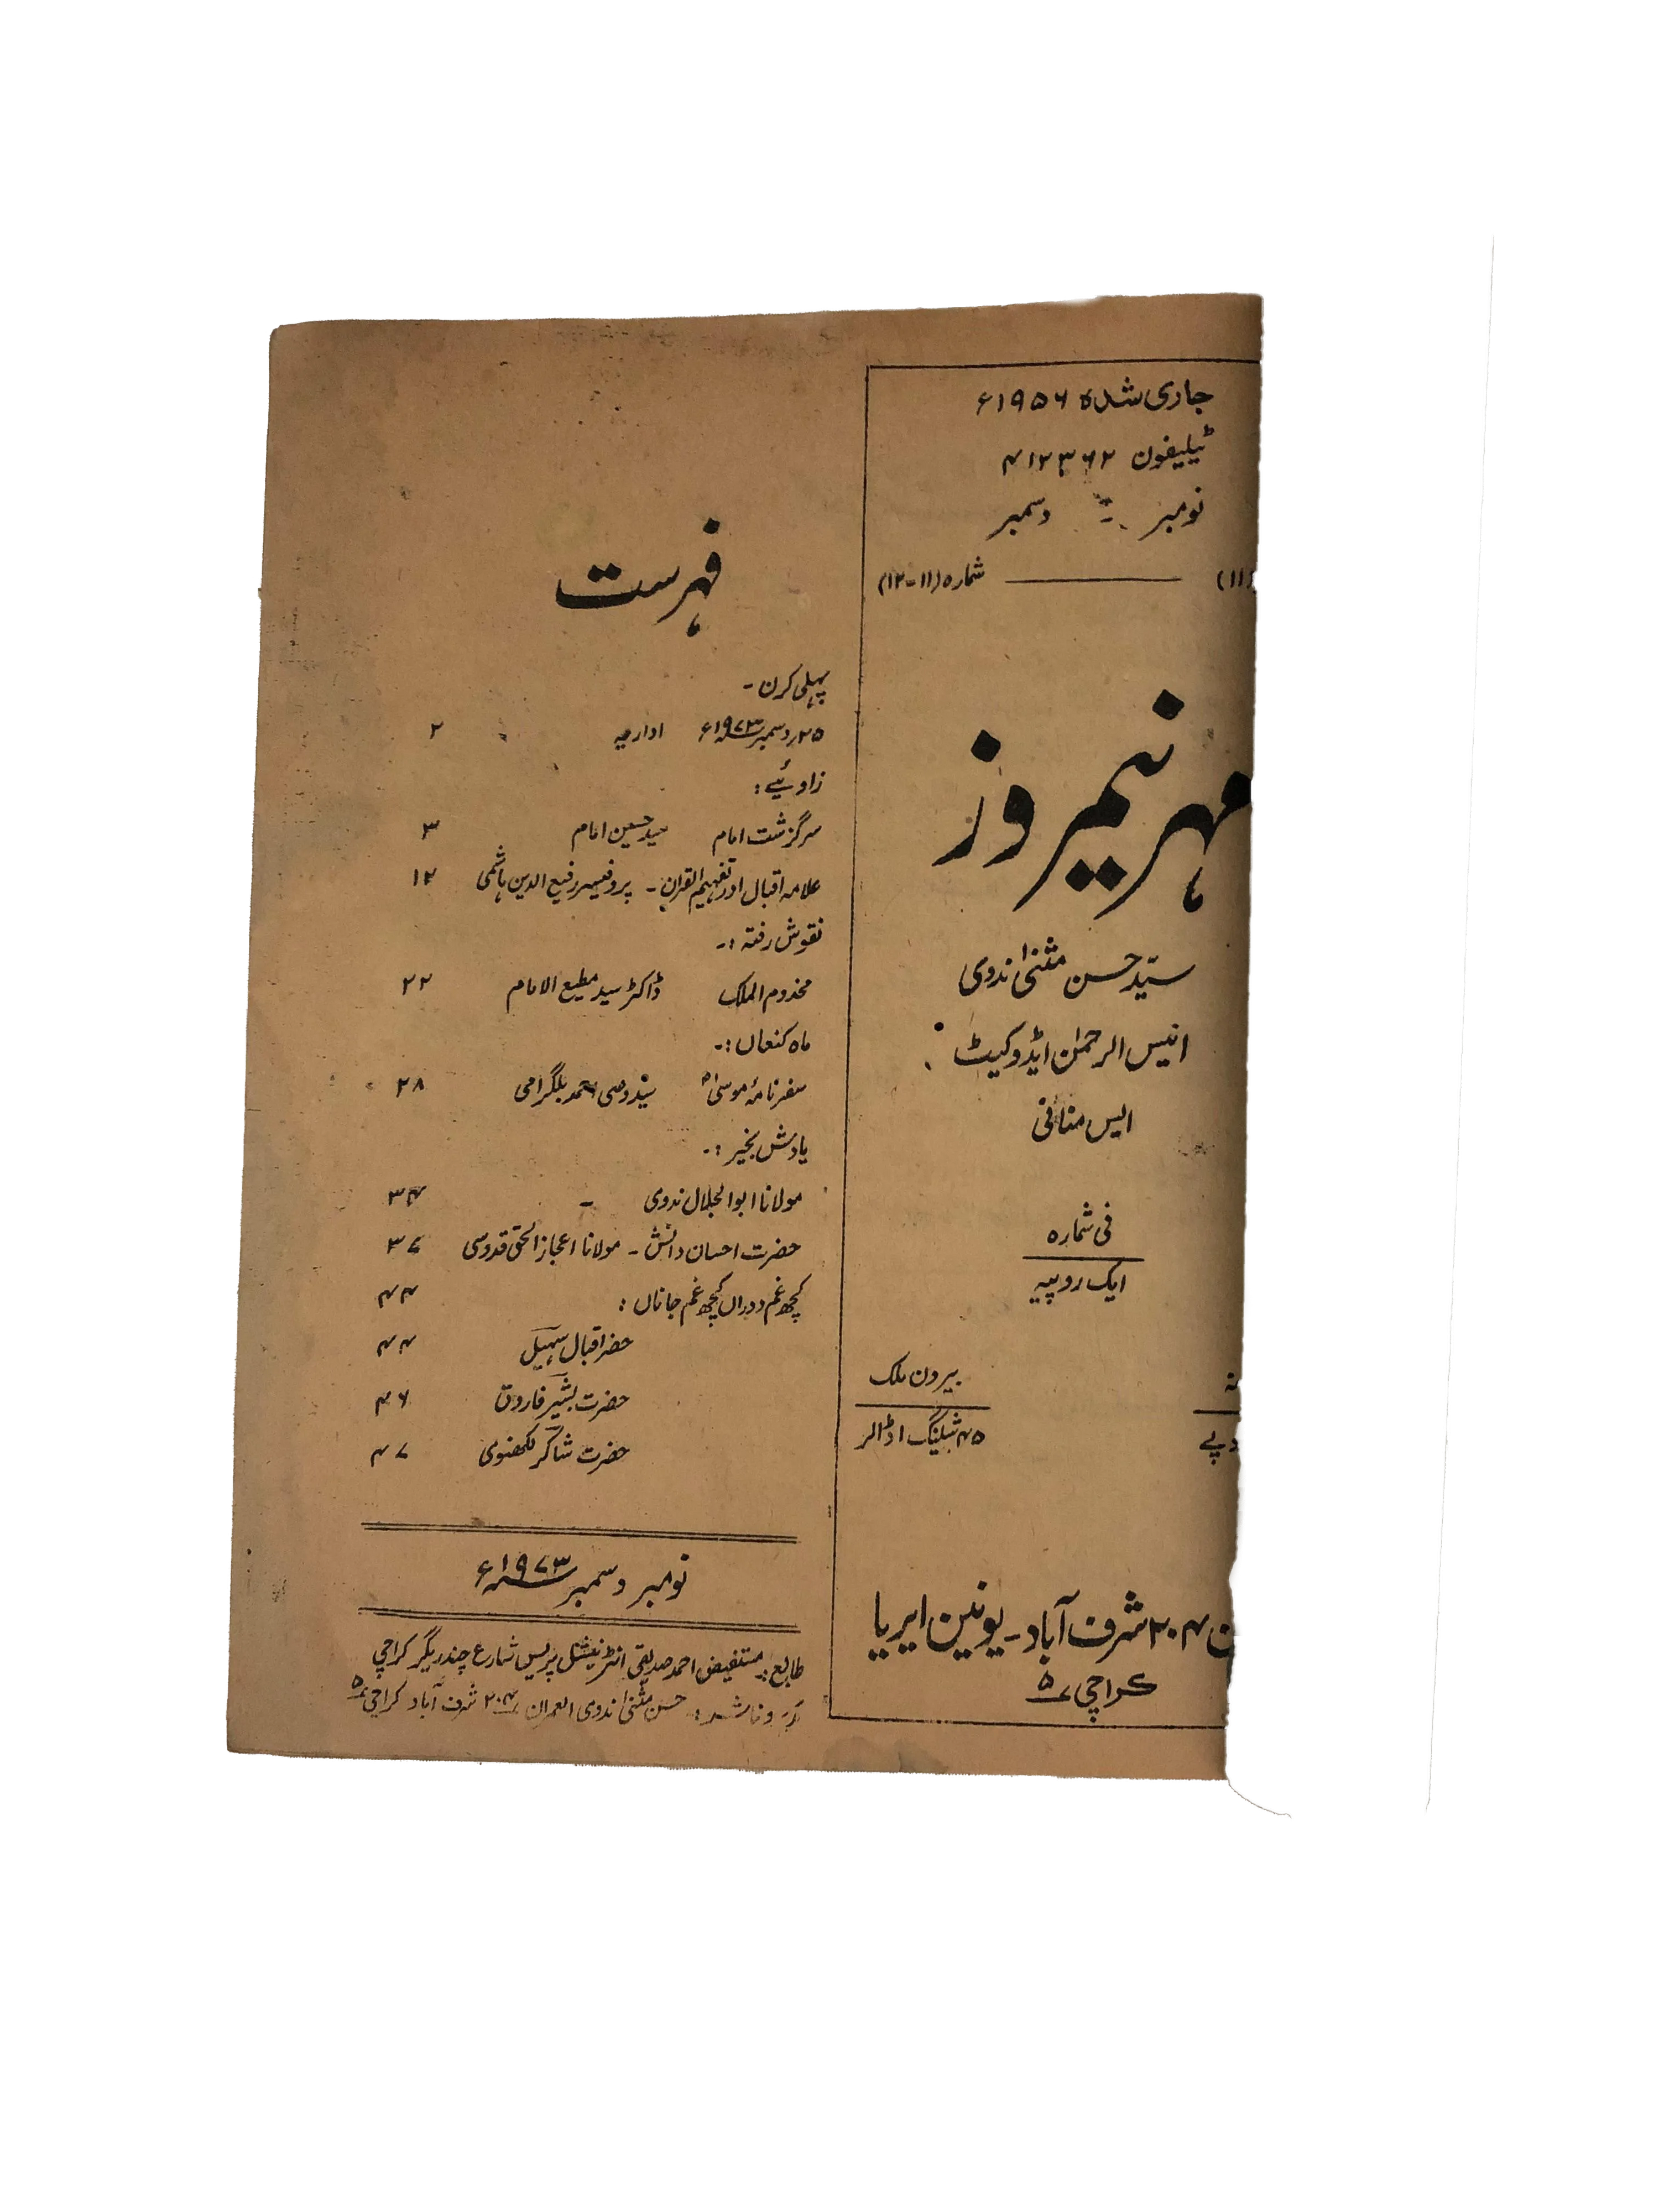 جاری شدہ ۱۹۵۶ء
ٹیلیفون ۴۱۲۳۶۲
نومبر - دسمبر
(۱۱) شمارہ (۱۱-۱۲)
مہر نیمروز
سیّد حسن مثنیٰ ندوی
انیس الرحمٰن ایڈوکیٹ
ایس منافی
فی شمارہ
ایک روپیہ
بیرون ملک
۴۵ شیلنگ ۱ ڈالر
۲۰۴ شرف آباد - یونین ایریا
کراچی ۵
فہرست
پہلی کرن -
۲۵؍ دسمبر ۱۹۷۳ء اداریہ ۲
زاویئے :
سرگزشت امام سید حسین امام ۳
علامہ اقبال اور تفہیم القرآن - پروفیسر رفیع الدین ہاشمی ۱۲
نقوش رفتہ :-
مخدوم الملک ڈاکٹر سید مطیع الامام ۲۲
ماہ کنعاں :-
سفرنامۂ موسیٰ سید وصی احمد بلگرامی ۲۸
یادش بخیر :-
مولانا ابوالجلال ندوی - ۳۴
حضرت احسان دانش - مولانا اعجاز الحق قدوسی ۳۷
کچھ غم دوراں کچھ غم جاناں : ۴۴
حضرت اقبال سہیل ۴۴
حضرت بشیر فاروق ۴۶
حضرت شاکر لکھنوی ۴۷
نومبر دسمبر ۱۹۷۳ء
طابع :- مستفیض احمد صدیقی انٹرنیشنل پریس شارع چندریگر کراچی
و ناشر :- حسن مثنیٰ ندوی العمران ۲۰۴ شرف آباد کراچی ۵